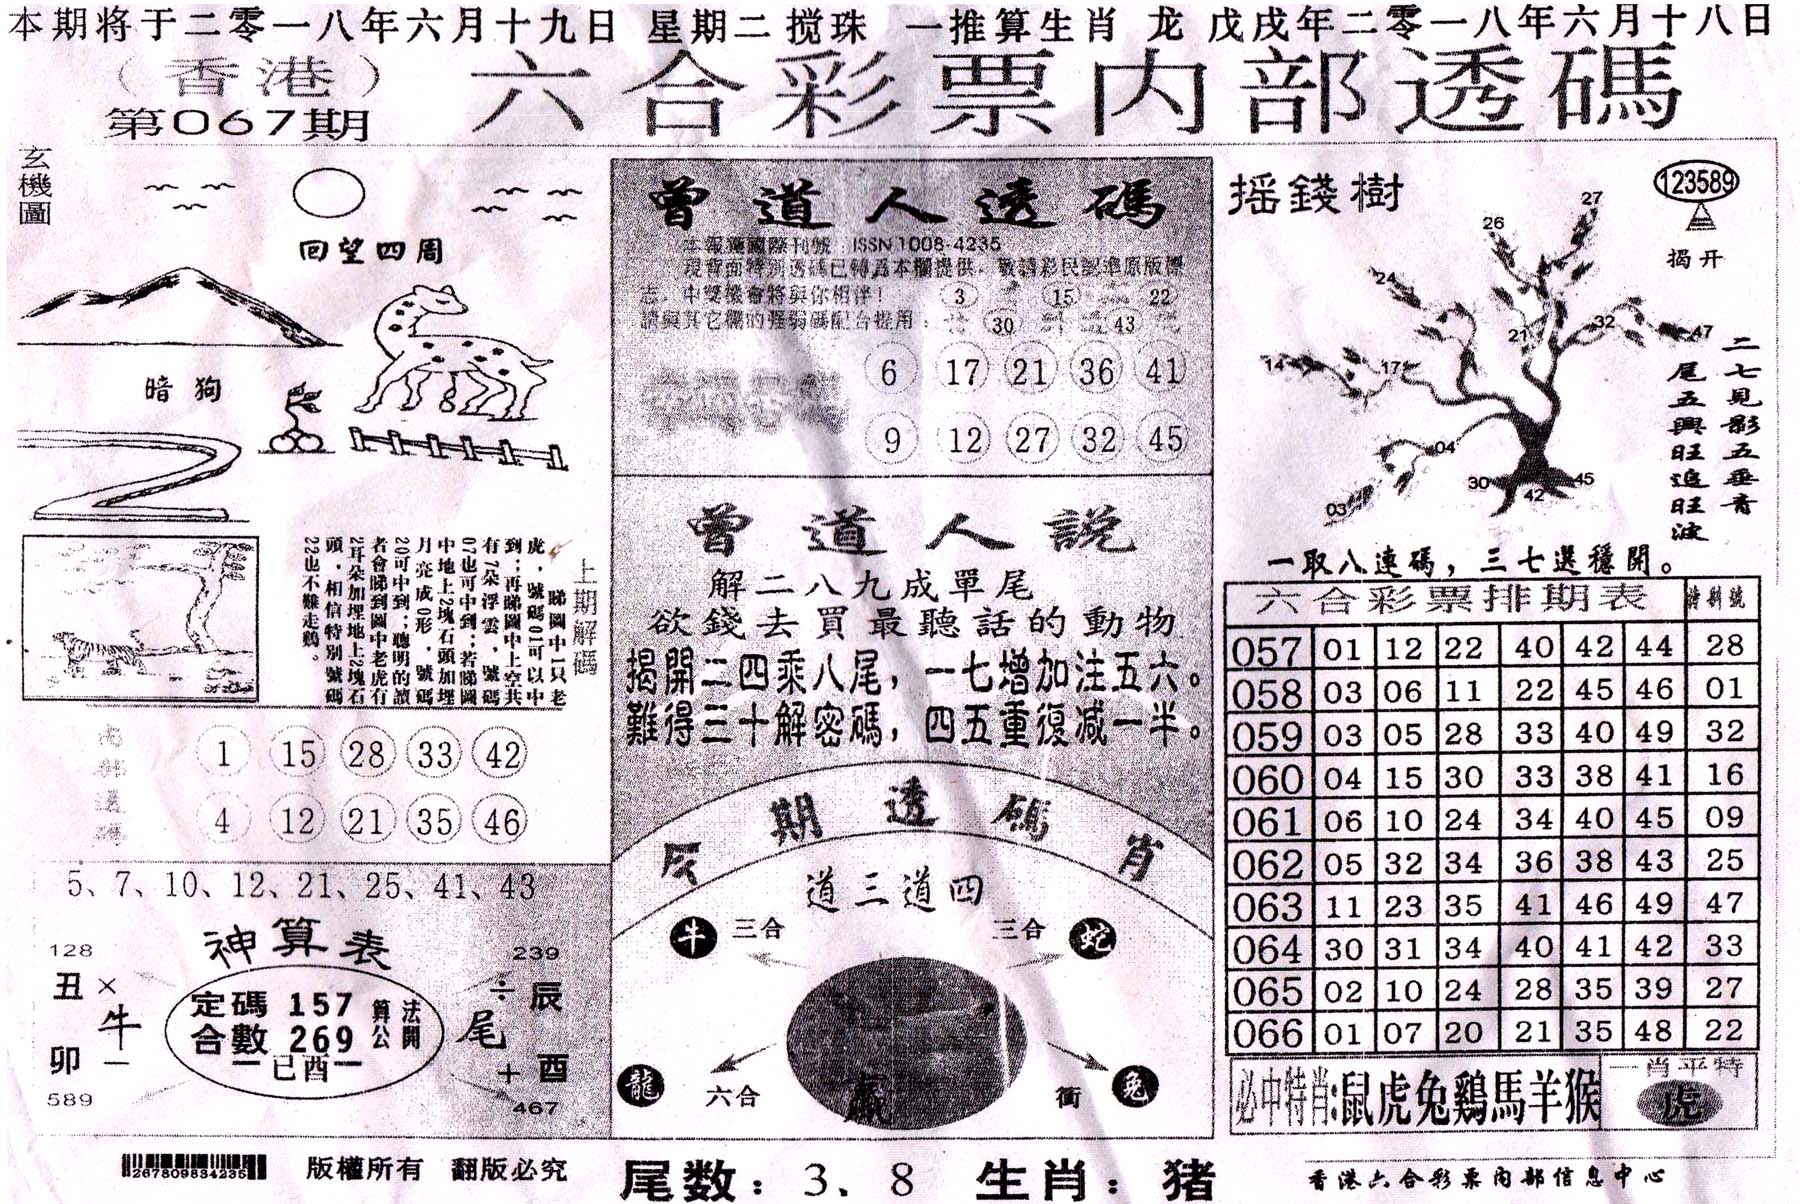 本期将于二零一八年六月十九日 星期二 搅珠 一推算生肖 龙 戊戌年二零一八年六月十八日
（香港）
第067期
六合彩票内部透碼
玄機圖
回望四周
暗狗
上期解碼
睇圖中1只老
虎，號碼01可以中
到；再睇圖中上空共
有7朵浮雲，號碼
07也可中到；若睇圖
中地上2塊石頭加埋
月亮成0形，號碼
20可中到；聰明的讀
者會睇到圖中老虎有
2耳朵加埋地上2塊石
頭，相信特别號碼
22也不難走鷄。
1 15 28 33 42
4 12 21 35 46
5、7、10、12、21、25、41、43
神算表
128
239
丑
×
牛
÷
辰
尾
定碼 157
合數 269
算公
法開
一已酉一
卯
一
+
酉
589
467
曾道人透碼
本報連國際刊號：ISSN 1008-4235
現背面特別透碼已轉爲本欄提供，敬請彩民認準原版標
志，中獎機會將與你相伴！
3 15 22
請與其它欄的强弱碼配合提用：
30 43
6 17 21 36 41
9 12 27 32 45
曾道人説
解二八九成單尾
欲錢去買最聽話的動物
揭開二四乘八尾，一七增加注五六。
難得三十解密碼，四五重復减一半。
期透碼肖
道三道四
牛 三合
三合 蛇
龍 六合
衝 兔
摇錢樹
123589
揭开
27
26
24
21
32
47
14
17
04
30
42
45
03
二七見影五垂青
尾五興旺追旺波
一取八連碼，三七選穩開。
六合彩票排期表 特别號
057 01 12 22 40 42 44 28
058 03 06 11 22 45 46 01
059 03 05 28 33 40 49 32
060 04 15 30 33 38 41 16
061 06 10 24 34 40 45 09
062 05 32 34 36 38 43 25
063 11 23 35 41 46 49 47
064 30 31 34 40 41 42 33
065 02 10 24 28 35 39 27
066 01 07 20 21 35 48 22
必中特肖:鼠虎兔鷄馬羊猴
一肖平特
虎
1267809834235
版權所有 翻版必究
尾数：3、8 生肖：猪
香港六合彩票内部信息中心